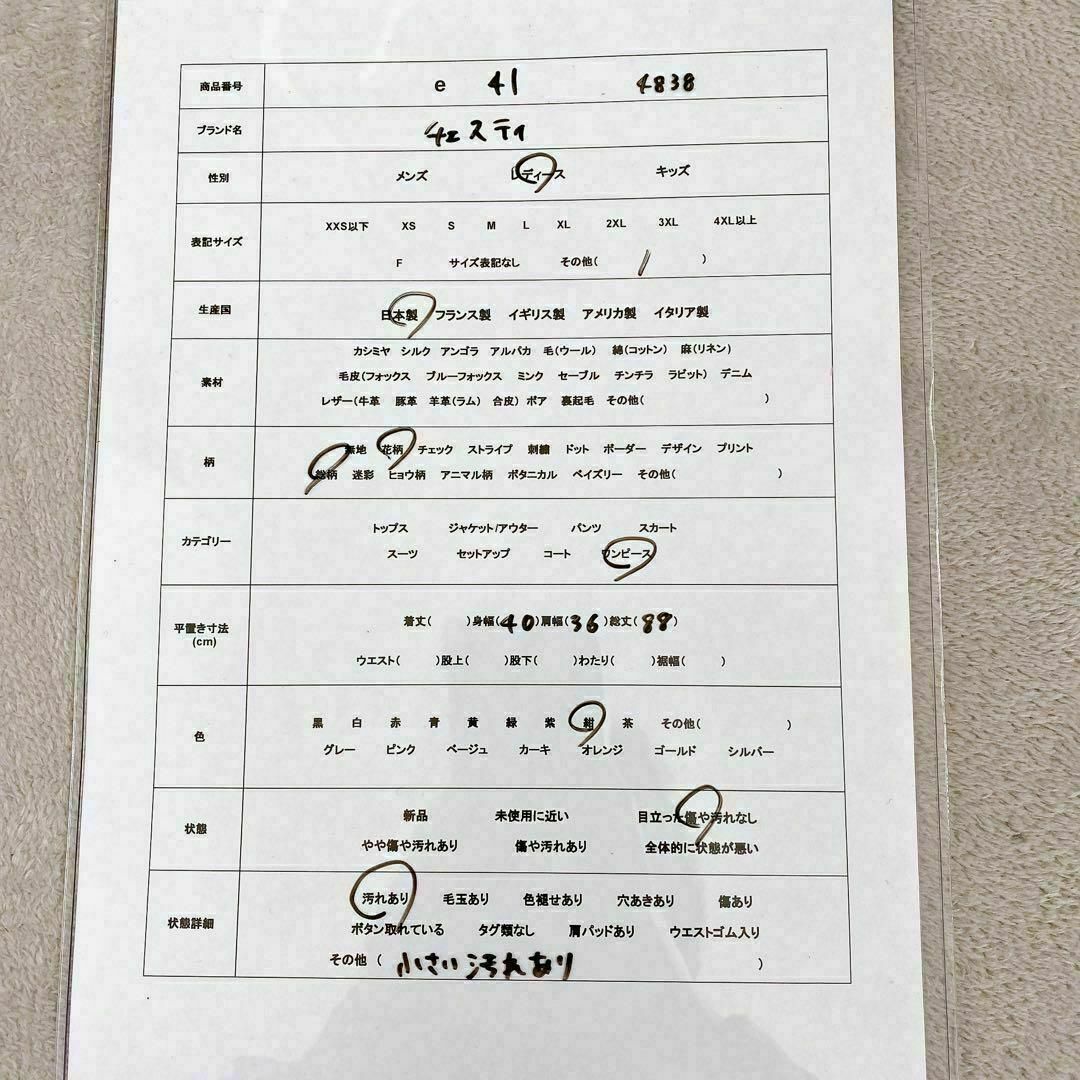 商品番号 e 41 4838
ブランド名 チェスティ
性別 メンズ レディース キッズ
表記サイズ
XXS以下 XS S M L XL 2XL 3XL 4XL以上
F サイズ表記なし その他( 1 )
生産国 日本製 フランス製 イギリス製 アメリカ製 イタリア製
素材
カシミヤ シルク アンゴラ アルパカ 毛(ウール) 綿(コットン) 麻(リネン)
毛皮(フォックス ブルーフォックス ミンク セーブル チンチラ ラビット) デニム
レザー(牛革 豚革 羊革(ラム) 合皮) ボア 裏起毛 その他( )
柄
無地 花柄 チェック ストライプ 刺繍 ドット ボーダー デザイン プリント
総柄 迷彩 ヒョウ柄 アニマル柄 ボタニカル ペイズリー その他( )
カテゴリー
トップス ジャケット/アウター パンツ スカート
スーツ セットアップ コート ワンピース
平置き寸法
(cm)
着丈( )身幅(40)肩幅(36)総丈(88)
ウエスト( )股上( )股下( )わたり( )裾幅( )
色
黒 白 赤 青 黄 緑 紫 紺 茶 その他( )
グレー ピンク ベージュ カーキ オレンジ ゴールド シルバー
状態
新品 未使用に近い 目立った傷や汚れなし
やや傷や汚れあり 傷や汚れあり 全体的に状態が悪い
状態詳細
汚れあり 毛玉あり 色褪せあり 穴あきあり 傷あり
ボタン取れている タグ類なし 肩パッドあり ウエストゴム入り
その他 ( 小さい汚れあり )